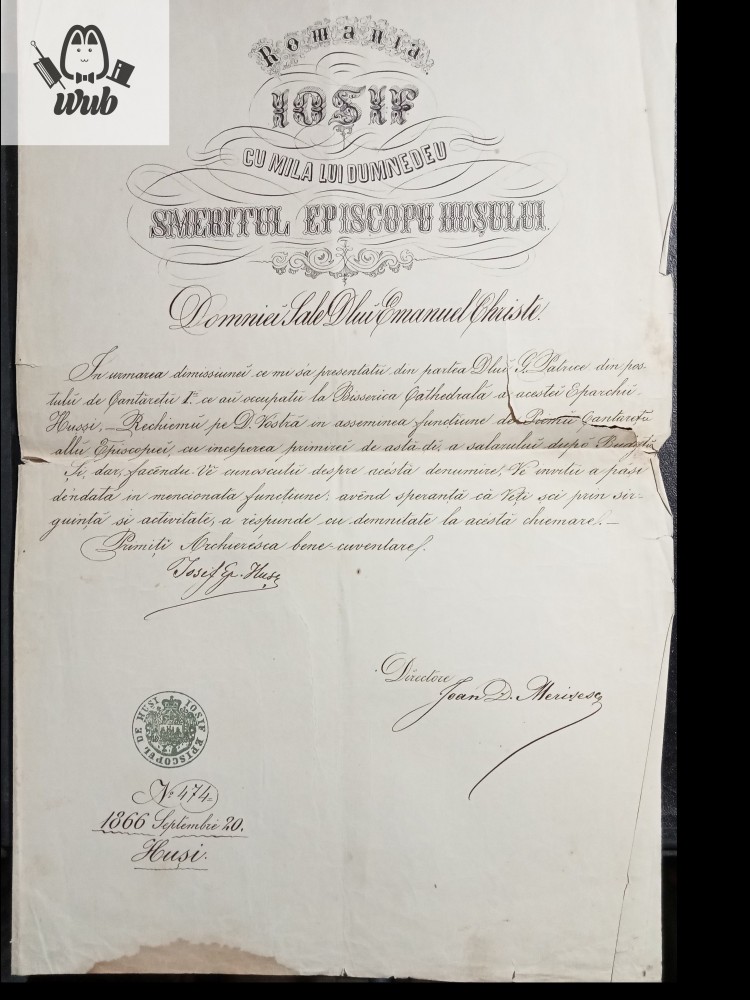 wub
Romania
IOSIF
CU MILA LUI DUMNEDEU
SMERITUL EPISCOPU HUȘULUI.
Domniei Sale Dlui Emanuel Christe.
In urmarea demissiunei ce mi sa presentatu din partea Dlui Patrice din pos-
tului de Cantaretu I. ce au ocupatu la Bisserica Cathedrală a acestei Eparchii
Hussi, — Rechiemŭ pe D. Vóstră in assemenea funcțiune de Primu Cantarețu
allu Episcopiei, cu inceperea primirei de astă-di, a salarului după Bugetu
Și, dar, facéndu-Ve cunoscutu despre acésta denumire, Ve invitu a păse
déndată in mencionata funcțiune; avénd speranță că Veți sci prin sir-
guință si activitate, a respunde cu demnitate la acéstă chiemare. —
Primiți Archieresca bene-cuventare.
Iosif Ep. Huși
Directore
Ioan D.
IOSIF EPISCOPUL DE HUȘI
No 474
1866 Septembre 20.
Huși.